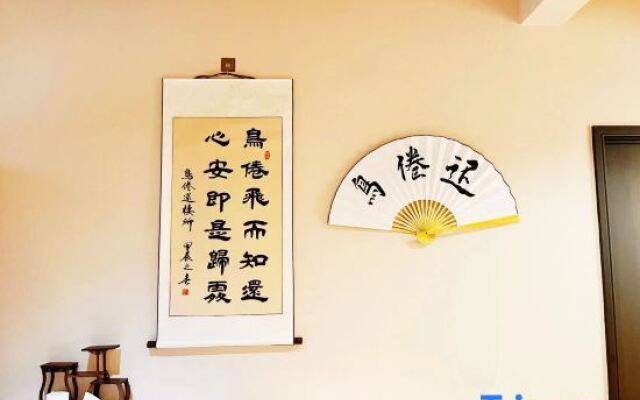 鳥倦飛而知還
心安即是歸處
鳥倦還棲所
甲辰之春
鳥倦还